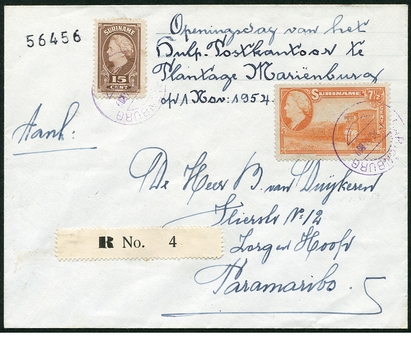 56456
SURINAME
15
CENT
Openingsdag van het
Hulp-Postkantoor te
Plantage Mariënburg
op 1 Nov: 1954.
SURINAME 7½
CENT
Aanh:
De Heer B. van Duykeren
N: 12
Zorg en Hoop
Paramaribo.
R No. 4